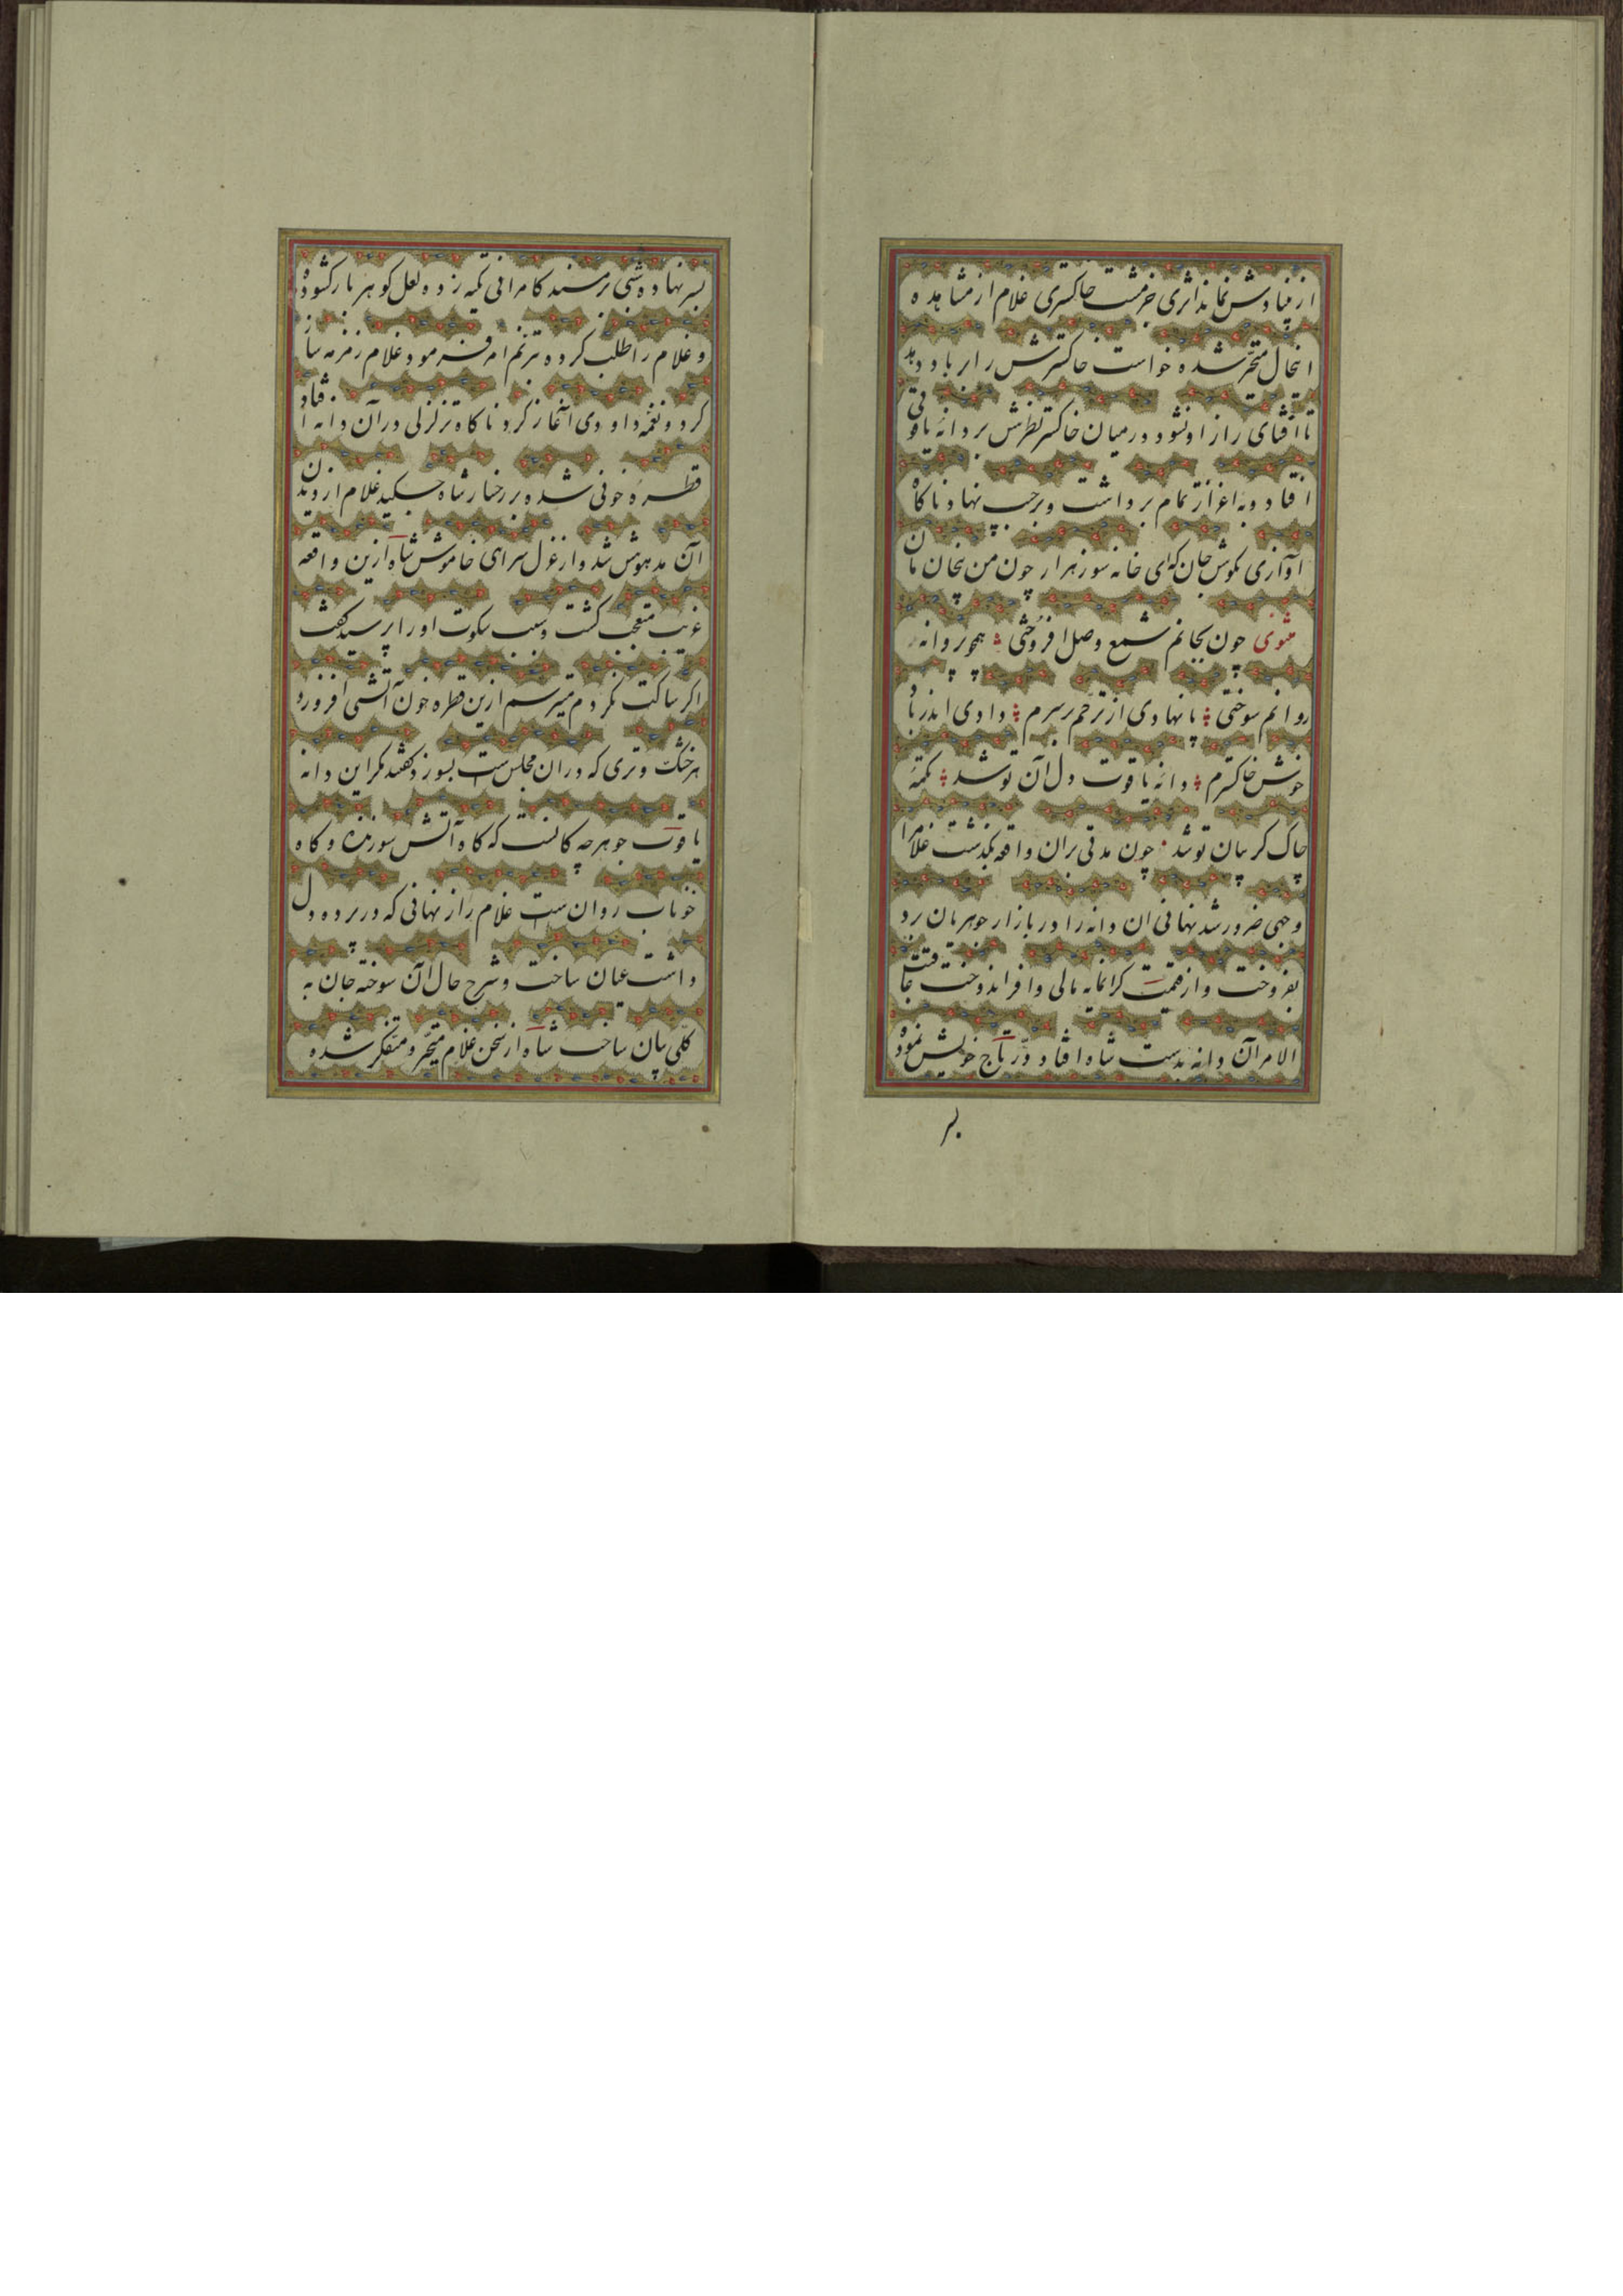 از بنیادش نماند اثری جز مشت خاکستری غلام از مشاهده
انحال متحیر شده خواست خاکسترش را بر باد دهد
تا افشای راز او نشود در میان خاکستر نظرش بر دانهٔ یاقوتی
افتاد و به اعزاز تمام برداشت و بر جیب نهاد ناگاه
آوازی بگوش جان که ای خانه سوز هزار چون من بیخان مان
مثنوی چون بجانم شمع وصل افروختی همچو پروانه
روانم سوختی پا نهادی از ترحم بر سرم دادی اندر باد
خوش خاکسترم دانهٔ یاقوت دل آن تو شد تکمهٔ
چاک گریبان تو شد چون مدتی بران واقعه بگذشت غلام را
وجهی ضرور شد نهانی ان دانه را در بازار جوهریان برد
بفروخت و از قیمت گرانمایه مالی وافر اندوخت عاقبت
الامر آن دانه بدست شاه افتاد و در تاج خویش نمود
بر
بسر نهاده شبی بر مسند کامرانی تکیه زده لعل گوهر بار کشوده
و غلام را طلب کرده ترنم امر فرمود غلام زمزمه ساز
کرد و نغمه داودی آغاز کرد ناگاه تزلزلی در آن دانه افتاد
قطرهٔ خونی شده بر رخسار شاه چکید غلام از دیدن
آن مدهوش شد و از غزل سرای خاموش شاه ازین واقعه
غریب متعجب گشت و سبب سکوت او را پرسید گفت
اگر ساکت نگردم میترسم ازین قطره خون آتشی افروزد
هر خشک و تری که دران مجلس ست بسوزد گفتند مگر این دانه
یاقوت جوهر چه کانست که گاه آتش سوزنده و گاه
خوناب روان ست غلام راز نهانی که در پرده دل
داشت عیان ساخت و شرح حال آن سوخته جان به
کلی بیان ساخت شاه از سخن غلام متحیر و متفکر شده